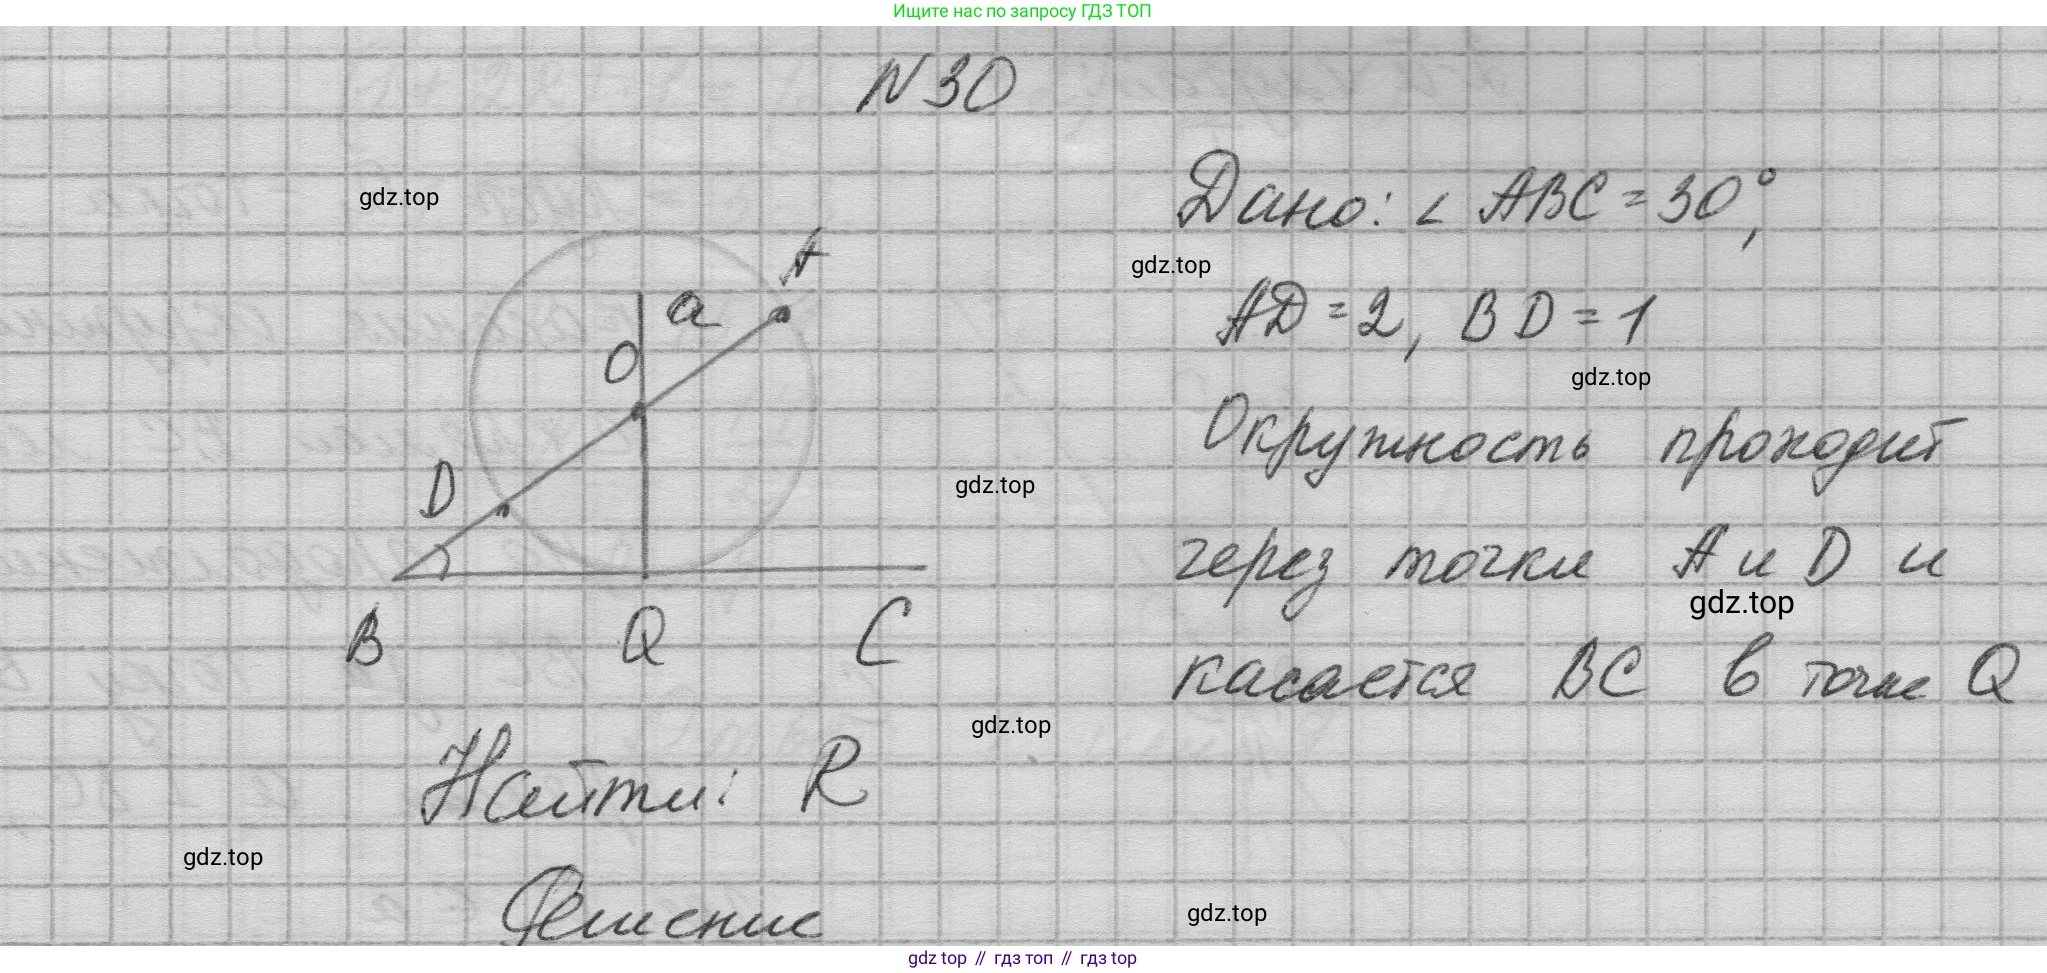 Ищите нас по запросу ГДЗ ТОП
N 30
gdz.top
Дано: ∠ ABC = 30°,
gdz.top
A
a
AD = 2, BD = 1
O
gdz.top
Окружность проходит
D
gdz.top
через точки A и D и
gdz.top
B Q C
касается BC в точке Q
gdz.top
Найти: R
gdz.top
Решение
gdz.top
gdz top // гдз топ // гдз top